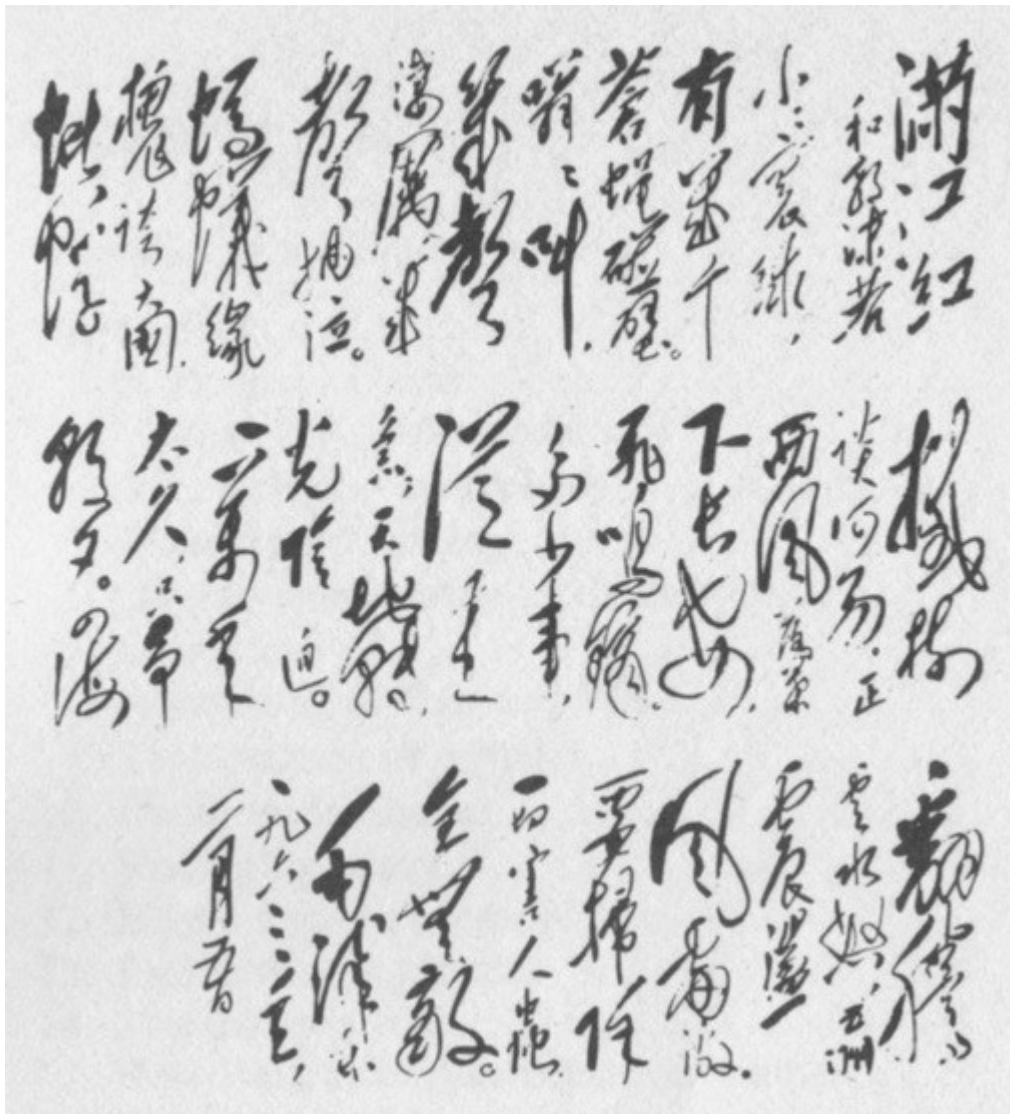 滿江紅
和郭沫若
小小寰球,
有幾个
蒼蠅碰壁。
嗡嗡叫,
幾聲
凄厲,幾
聲抽泣。
螞蟻緣
槐誇大國,
蚍蜉
撼树
談何易。正
西風落葉
下長安,
飛鳴鏑。
多少事,
從来
急;天地轉,
光陰迫。
一萬年
太久,只争
朝夕。四海
翻騰
雲水怒,五洲
震盪
風雷激。
要掃除
一切害人蟲,
全無敵。
毛澤东
一九六三年,
二月五日